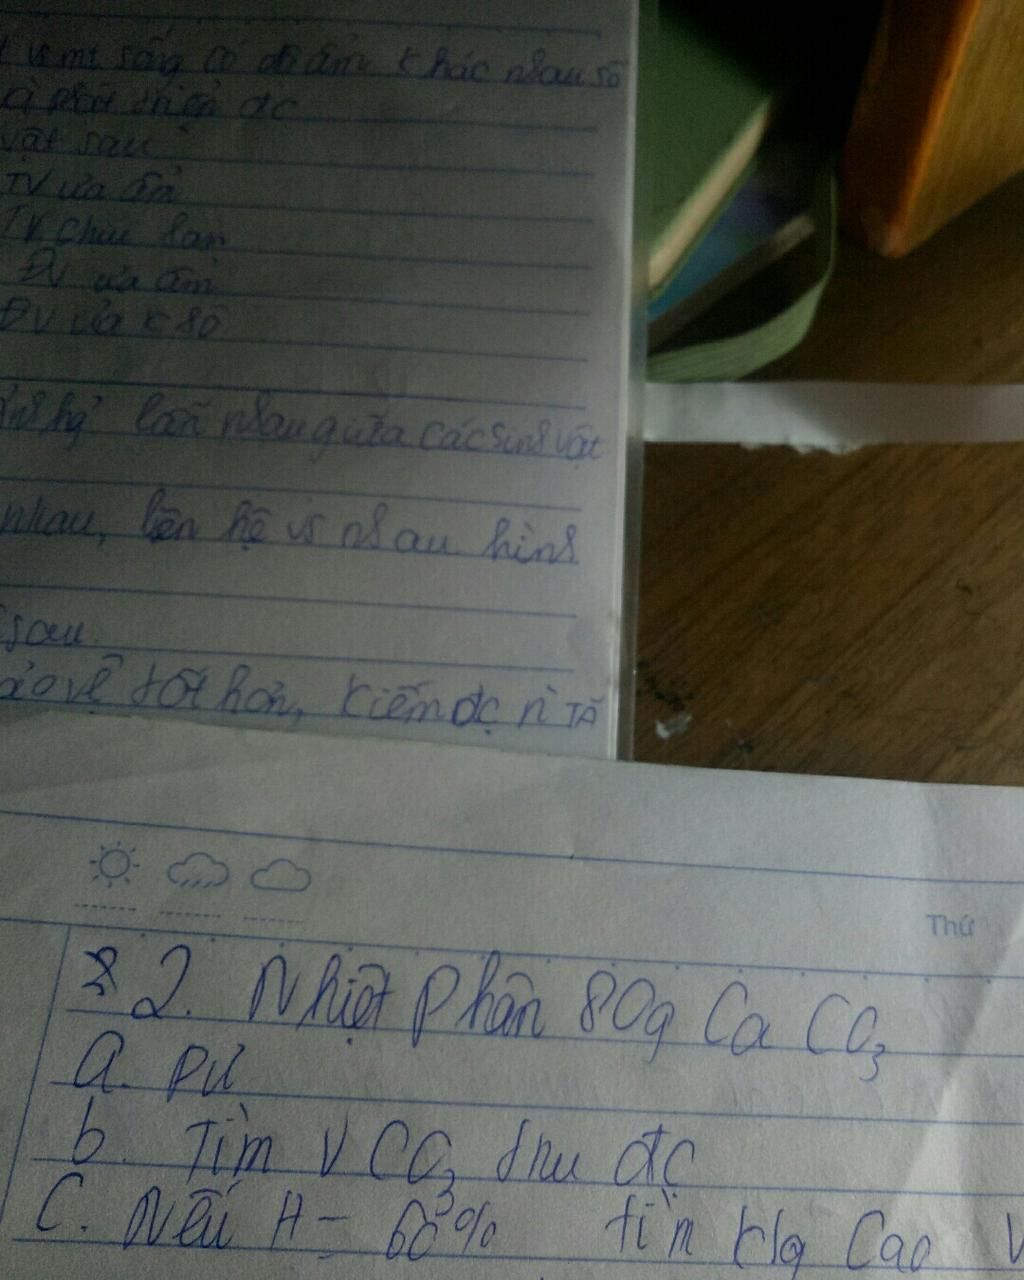 vs mt sống có độ ẩm khác nhau sẽ
phát triển đc
vật sau
TV ưa ẩm
TV chịu hạn
ĐV ưa ẩm
ĐV ưa khô
lẫn nhau giữa các sinh vật
nhau, liên hệ vs nhau hình
sau
vệ tốt hơn, kiếm đc n` TĂ
Thứ
2. Nhiệt phân 80g CaCO3
a. PƯ
b. Tìm V CO2 thu đc
C. Nếu H = 60% tìm klg CaO V